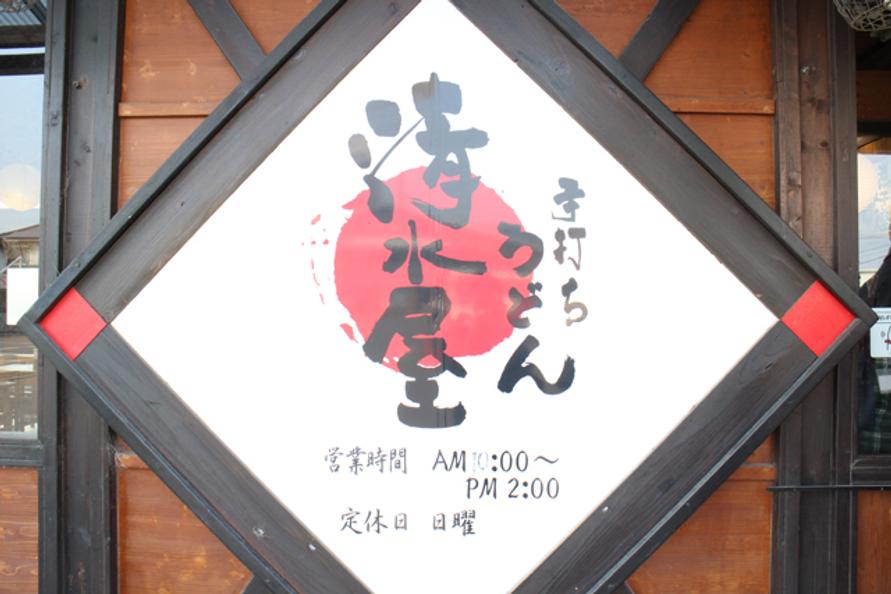 手打ち
うどん
清水屋
営業時間 AM10:00～
PM 2:00
定休日 日曜